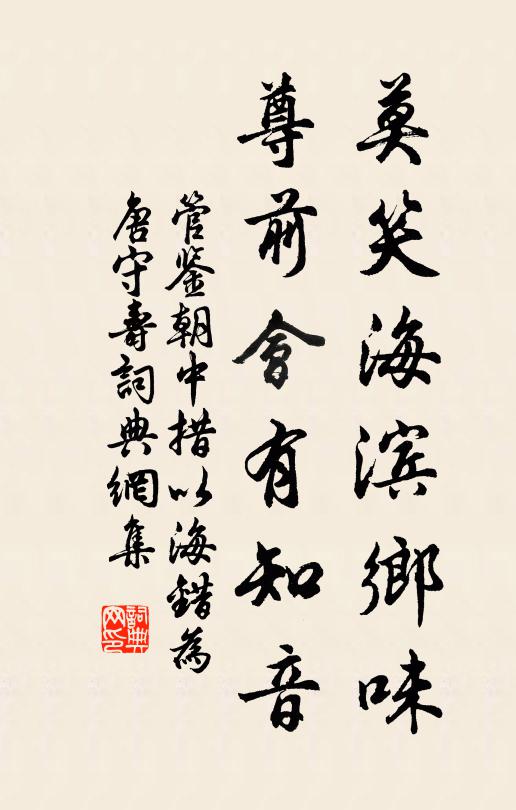 莫笑海滨鄉味
尊前會有知音
管鉴朝中措以海錯為
唐守壽詞典網集
詞典网印